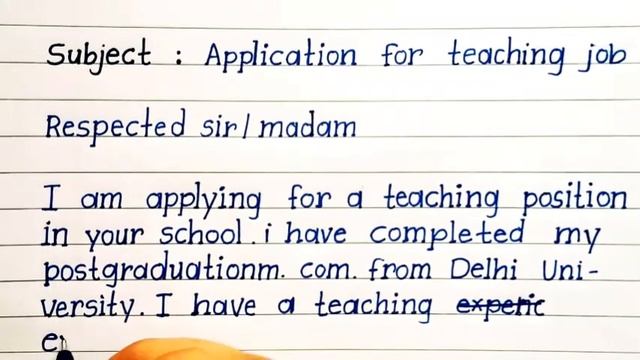 Subject : Application for teaching job
Respected sir/madam
I am applying for a teaching position
in your school. i have completed my
postgraduationm. com. from Delhi Uni-
versity. I have a teaching experic
e